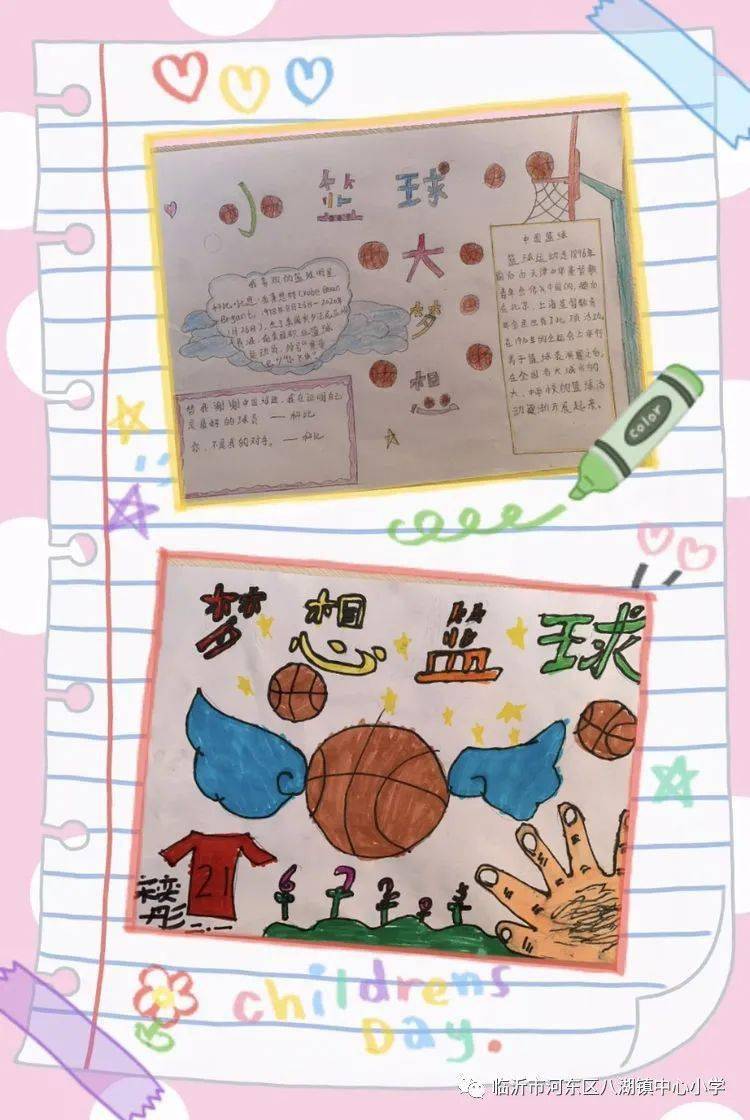 小篮球
大
梦
想
我喜欢的篮球明星
科比·比恩·布莱恩特(Kobe Bean
Bryant, 1978年8月23日—2020年
1月26日),出生于美国宾夕法尼亚州
费城,前美国职业篮球
运动员,
中国篮球
篮球运动是1896年
前后由天津中华基督教
青年会传入中国的,随后
在北京、上海基督教青
年会里也有了此项活动。
在1910年的全运会上举行
了男子篮球表演赛之后,
在全国各大城市的
大、中学校的篮球活
动逐渐开展起来。
替我谢谢中国球迷,我在证明自己
是最好的球员 —科比
你,不是我的对手。—科比
color
梦想篮球
21
childrens
Day.
临沂市河东区八湖镇中心小学